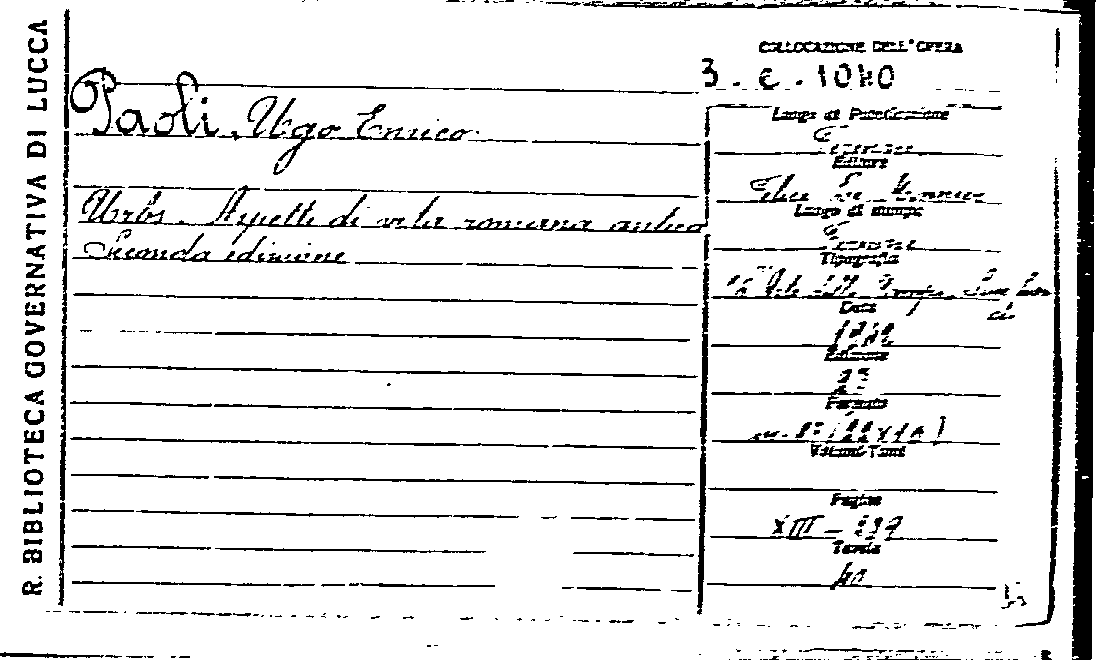 R. BIBLIOTECA GOVERNATIVA DI LUCCA
COLLOCAZIONE DELL'OPERA
3. C. 1040
Paoli, Ugo Enrico
Urbs. Aspetti di vita romana antica
Seconda edizione
Luogo di Pubblicazione
Firenze
Editore
Felice Le Monnier
Luogo di stampa
Firenze
Tipografia
Data
1942
Edizione
Formato
Volumi-Tomi
Pagine
XIII -
Tavole
40